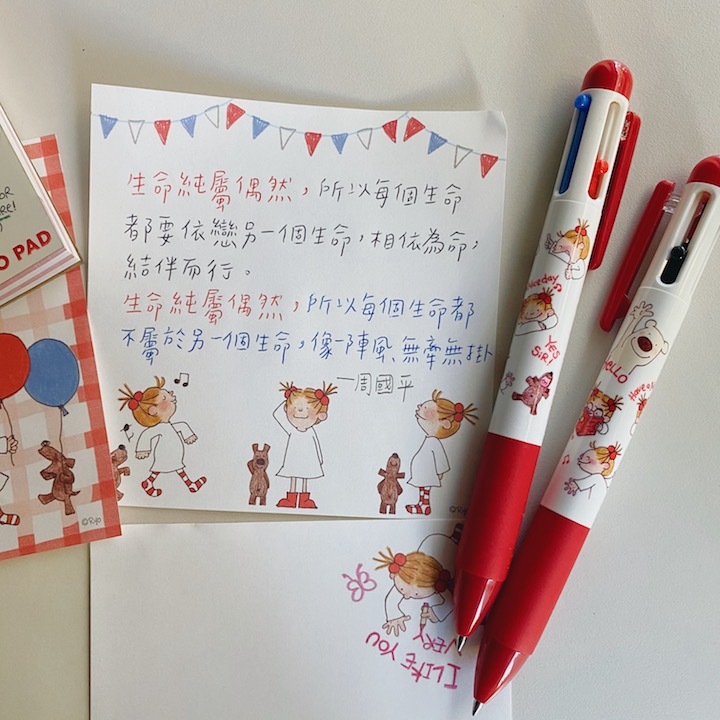 生命純屬偶然，所以每個生命
都要依戀另一個生命，相依為命，
結伴而行。
生命純屬偶然，所以每個生命都
不屬於另一個生命，像一陣風，無牽無掛
—周國平
©Ryo
©Ryo
O PAD
I LIKE YOU
VERY
YES
SIR!
HELLO